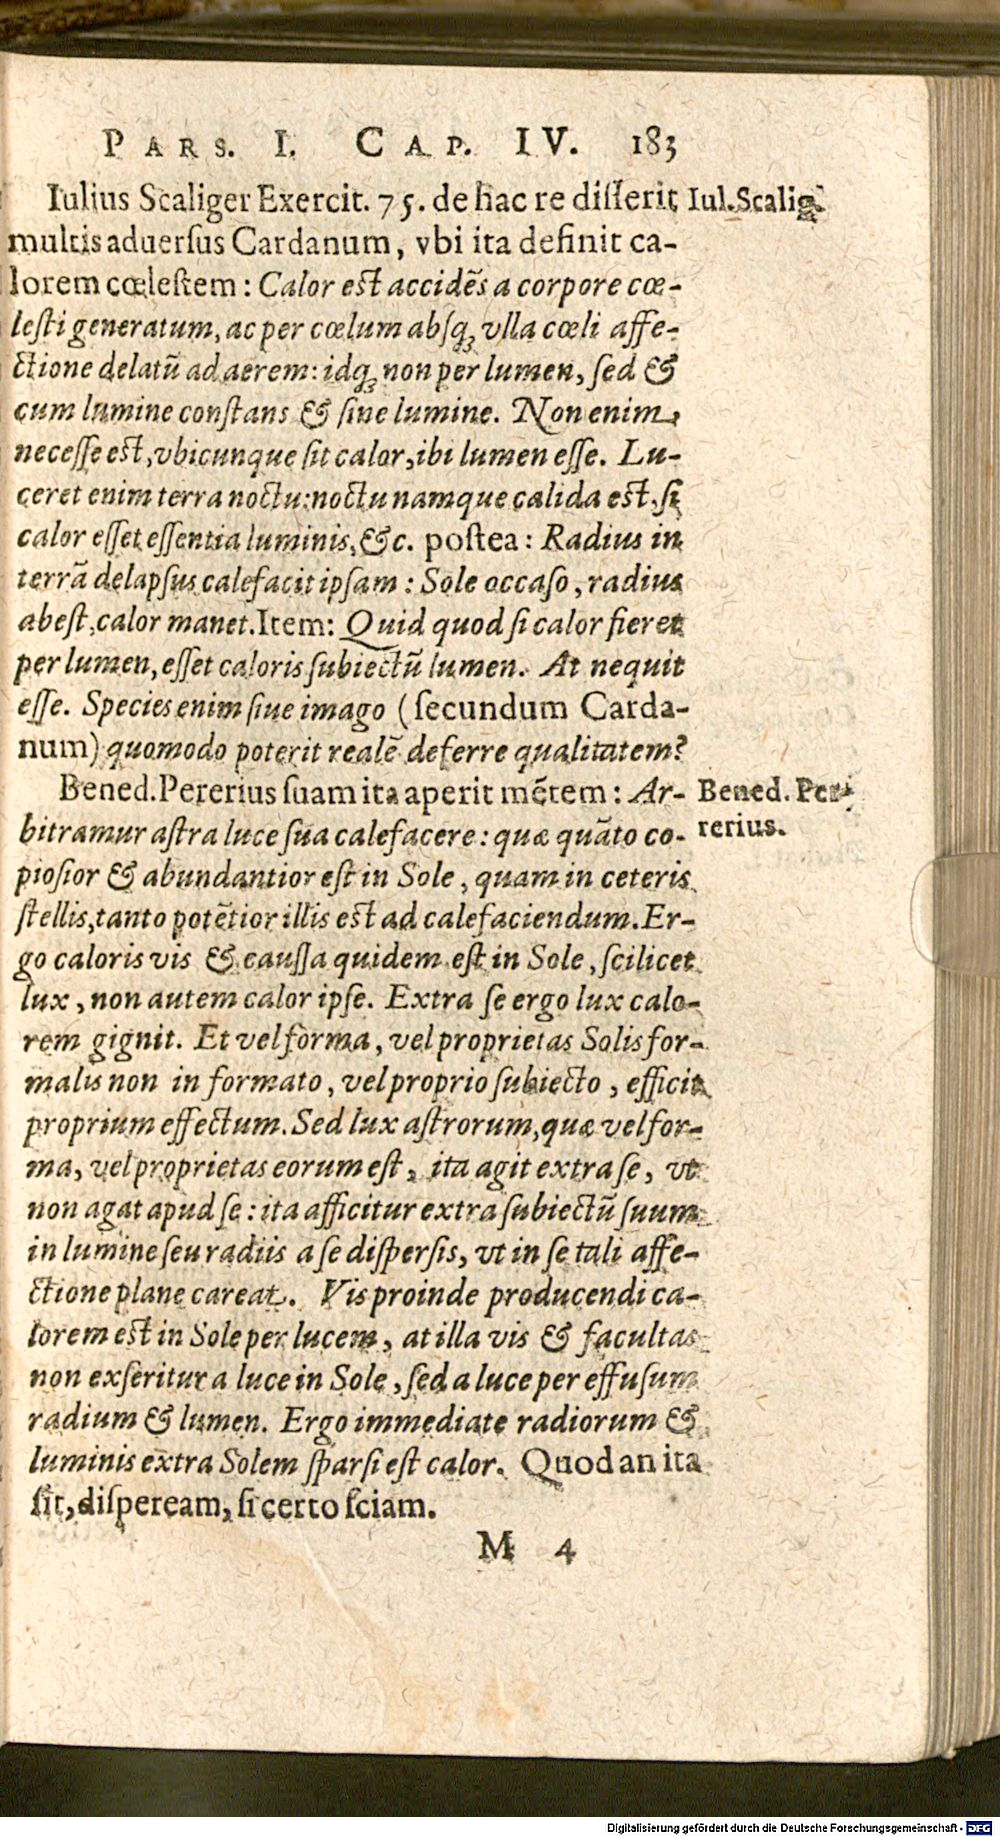 PARS. I. CAP. IV. 183
Iulius Scaliger Exercit. 75. de hac re disserit Iul. Scalig.
multis aduersus Cardanum, vbi ita definit ca-
lorem cœlestem: Calor est accidēs a corpore cœ-
lesti generatum, ac per cœlum absqꝫ vlla cœli affe-
ctione delatū ad aerem: idqꝫ non per lumen, sed &
cum lumine constans & sine lumine. Non enim
necesse est, vbicunque sit calor, ibi lumen esse. Lu-
ceret enim terra noctu: noctu namque calida est, si
calor esset essentia luminis, &c. postea: Radius in
terrā delapsus calefacit ipsam: Sole occaso, radius
abest, calor manet. Item: Quid quod si calor fieret
per lumen, esset caloris subiectū lumen. At nequit
esse. Species enim siue imago (secundum Carda-
num) quomodo poterit realē deferre qualitatem?
Bened. Pererius suam ita aperit mētem: Ar- Bened. Pe-
bitramur astra luce sua calefacere: quæ quāto co- rerius.
piosior & abundantior est in Sole, quam in ceteris
stellis, tanto potētior illis est ad calefaciendum. Er-
go caloris vis & caussa quidem est in Sole, scilicet
lux, non autem calor ipse. Extra se ergo lux calo-
rem gignit. Et vel forma, vel proprietas Solis for-
malis non in formato, vel proprio subiecto, efficit
proprium effectum. Sed lux astrorum, quæ vel for-
ma, vel proprietas eorum est, ita agit extra se, vt
non agat apud se: ita afficitur extra subiectū suum
in lumine seu radiis a se dispersis, vt in se tali affe-
ctione plane careat. Vis proinde producendi ca-
lorem est in Sole per lucem, at illa vis & facultas
non exseritur a luce in Sole, sed a luce per effusum
radium & lumen. Ergo immediate radiorum &
luminis extra Solem sparsi est calor. Quod an ita
sit, dispeream, si certo sciam.
M 4
Digitalisierung gefördert durch die Deutsche Forschungsgemeinschaft - DFG